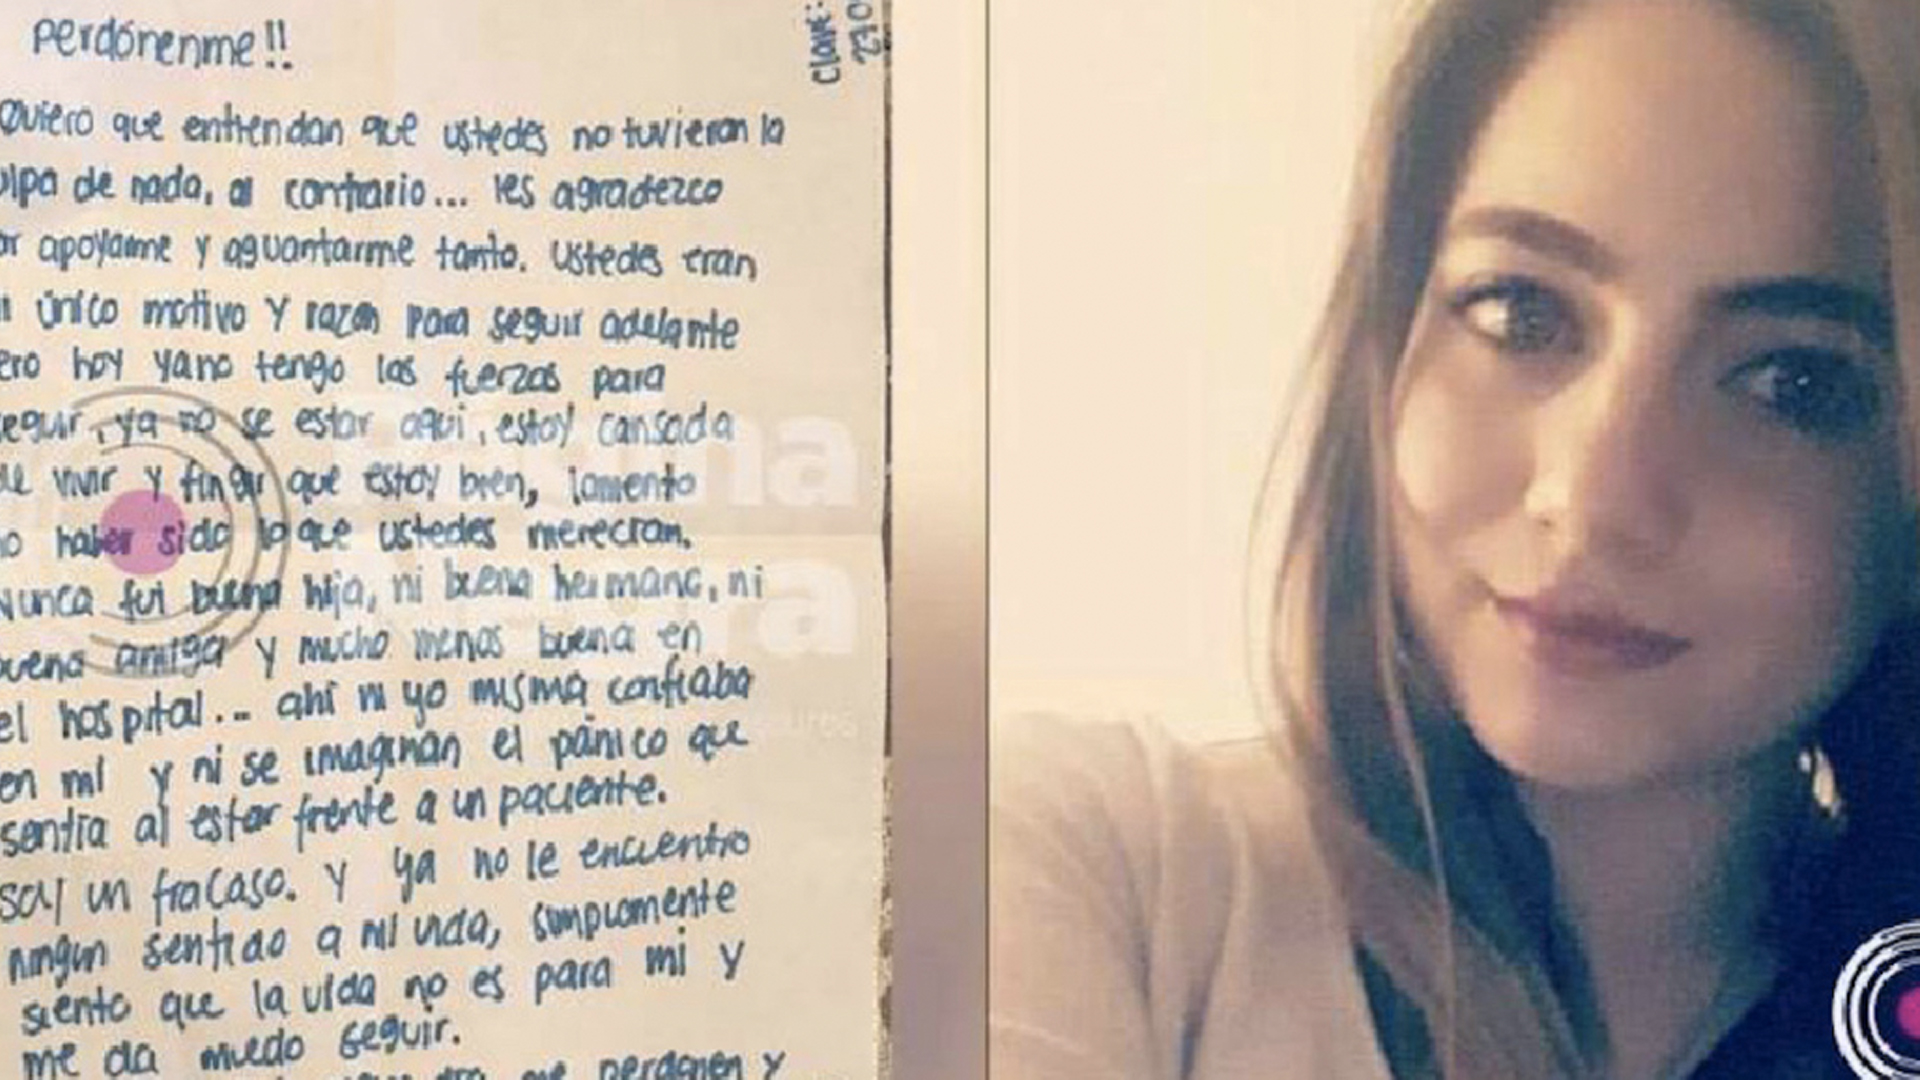 Perdónenme!!
Clave:
230
Quiero que entiendan que ustedes no tuvieron la
ulpa de nada, al contrario... les agradezco
or apoyarme y aguantarme tanto. Ustedes eran
i único motivo y razón para seguir adelante
ero hoy ya no tengo las fuerzas para
eguir, ya no se estar aqui, estoy cansada
de vivir y fingir que estoy bien, lamento
no haber sido lo que ustedes merecían.
Nunca fui buena hija, ni buena hermana, ni
buena amiga y mucho menos buena en
el hospital... ahí ni yo misma confiaba
en mí y ni se imaginan el pánico que
sentía al estar frente a un paciente.
soy un fracaso. Y ya no le encuentro
ningun sentido a mi vida, simplemente
siento que la vida no es para mi y
me da miedo seguir.
que me perdonen y